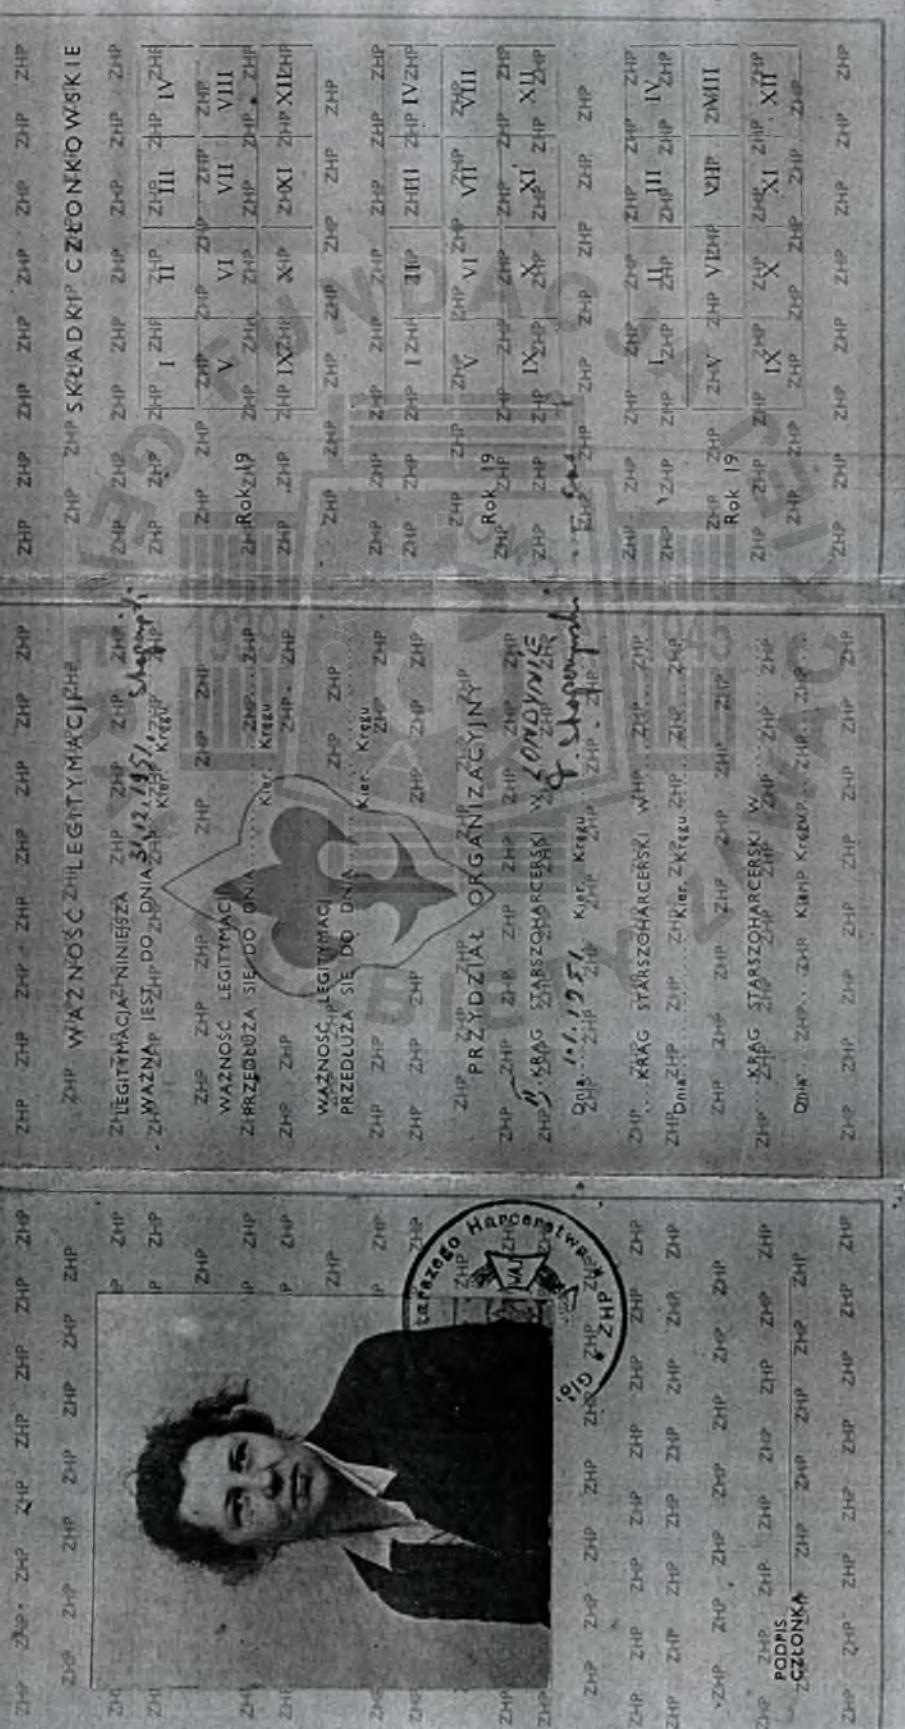 PODPIS
CZŁONKA
tarszego Harcerstwa
ZHP
WAŻNOŚĆ LEGITYMACJI
LEGITYMACJA NINIEJSZA
WAŻNA JEST DO DNIA 31.12.1951.
Kier. Kręgu
WAŻNOŚĆ LEGITYMACJI
PRZEDŁUŻA SIĘ DO DNIA ..........
Kier. Kręgu
WAŻNOŚĆ LEGITYMACJI
PRZEDŁUŻA SIĘ DO DNIA ..........
Kier. Kręgu
PRZYDZIAŁ ORGANIZACYJNY
KRĄG STARSZOHARCERSKI W LONDYNIE
Dnia 10.1.1951 Kier. Kręgu
KRĄG STARSZOHARCERSKI W ..........
Dnia .......... Kier. Kręgu ..........
KRĄG STARSZOHARCERSKI W ..........
Dnia .......... Kier. Kręgu ..........
SKŁADKI CZŁONKOWSKIE
I II III IV
Rok 19 V VI VII VIII
IX X XI XII
I II III IV
Rok 19 V VI VII VIII
IX X XI XII
I II III IV
Rok 19 V VI VII VIII
IX X XI XII
ZHP ZHP ZHP ZHP ZHP ZHP ZHP ZHP
FUNDACJA GENERAŁ ZAWACKIEJ